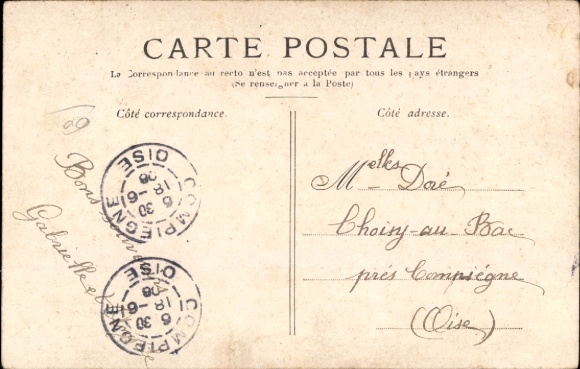 CARTE POSTALE
La Correspondance au recto n'est pas acceptée par tous les pays étrangers
(Se renseigner à la Poste)
Côté correspondance.
Côté adresse.
Bons
Gabrielle et
COMPIEGNE
6 30
18 -6
06
OISE
COMPIEGNE
6 30
18 -6
06
OISE
Melles Doré
Choisy-au-Bac
près Compiègne
(Oise)